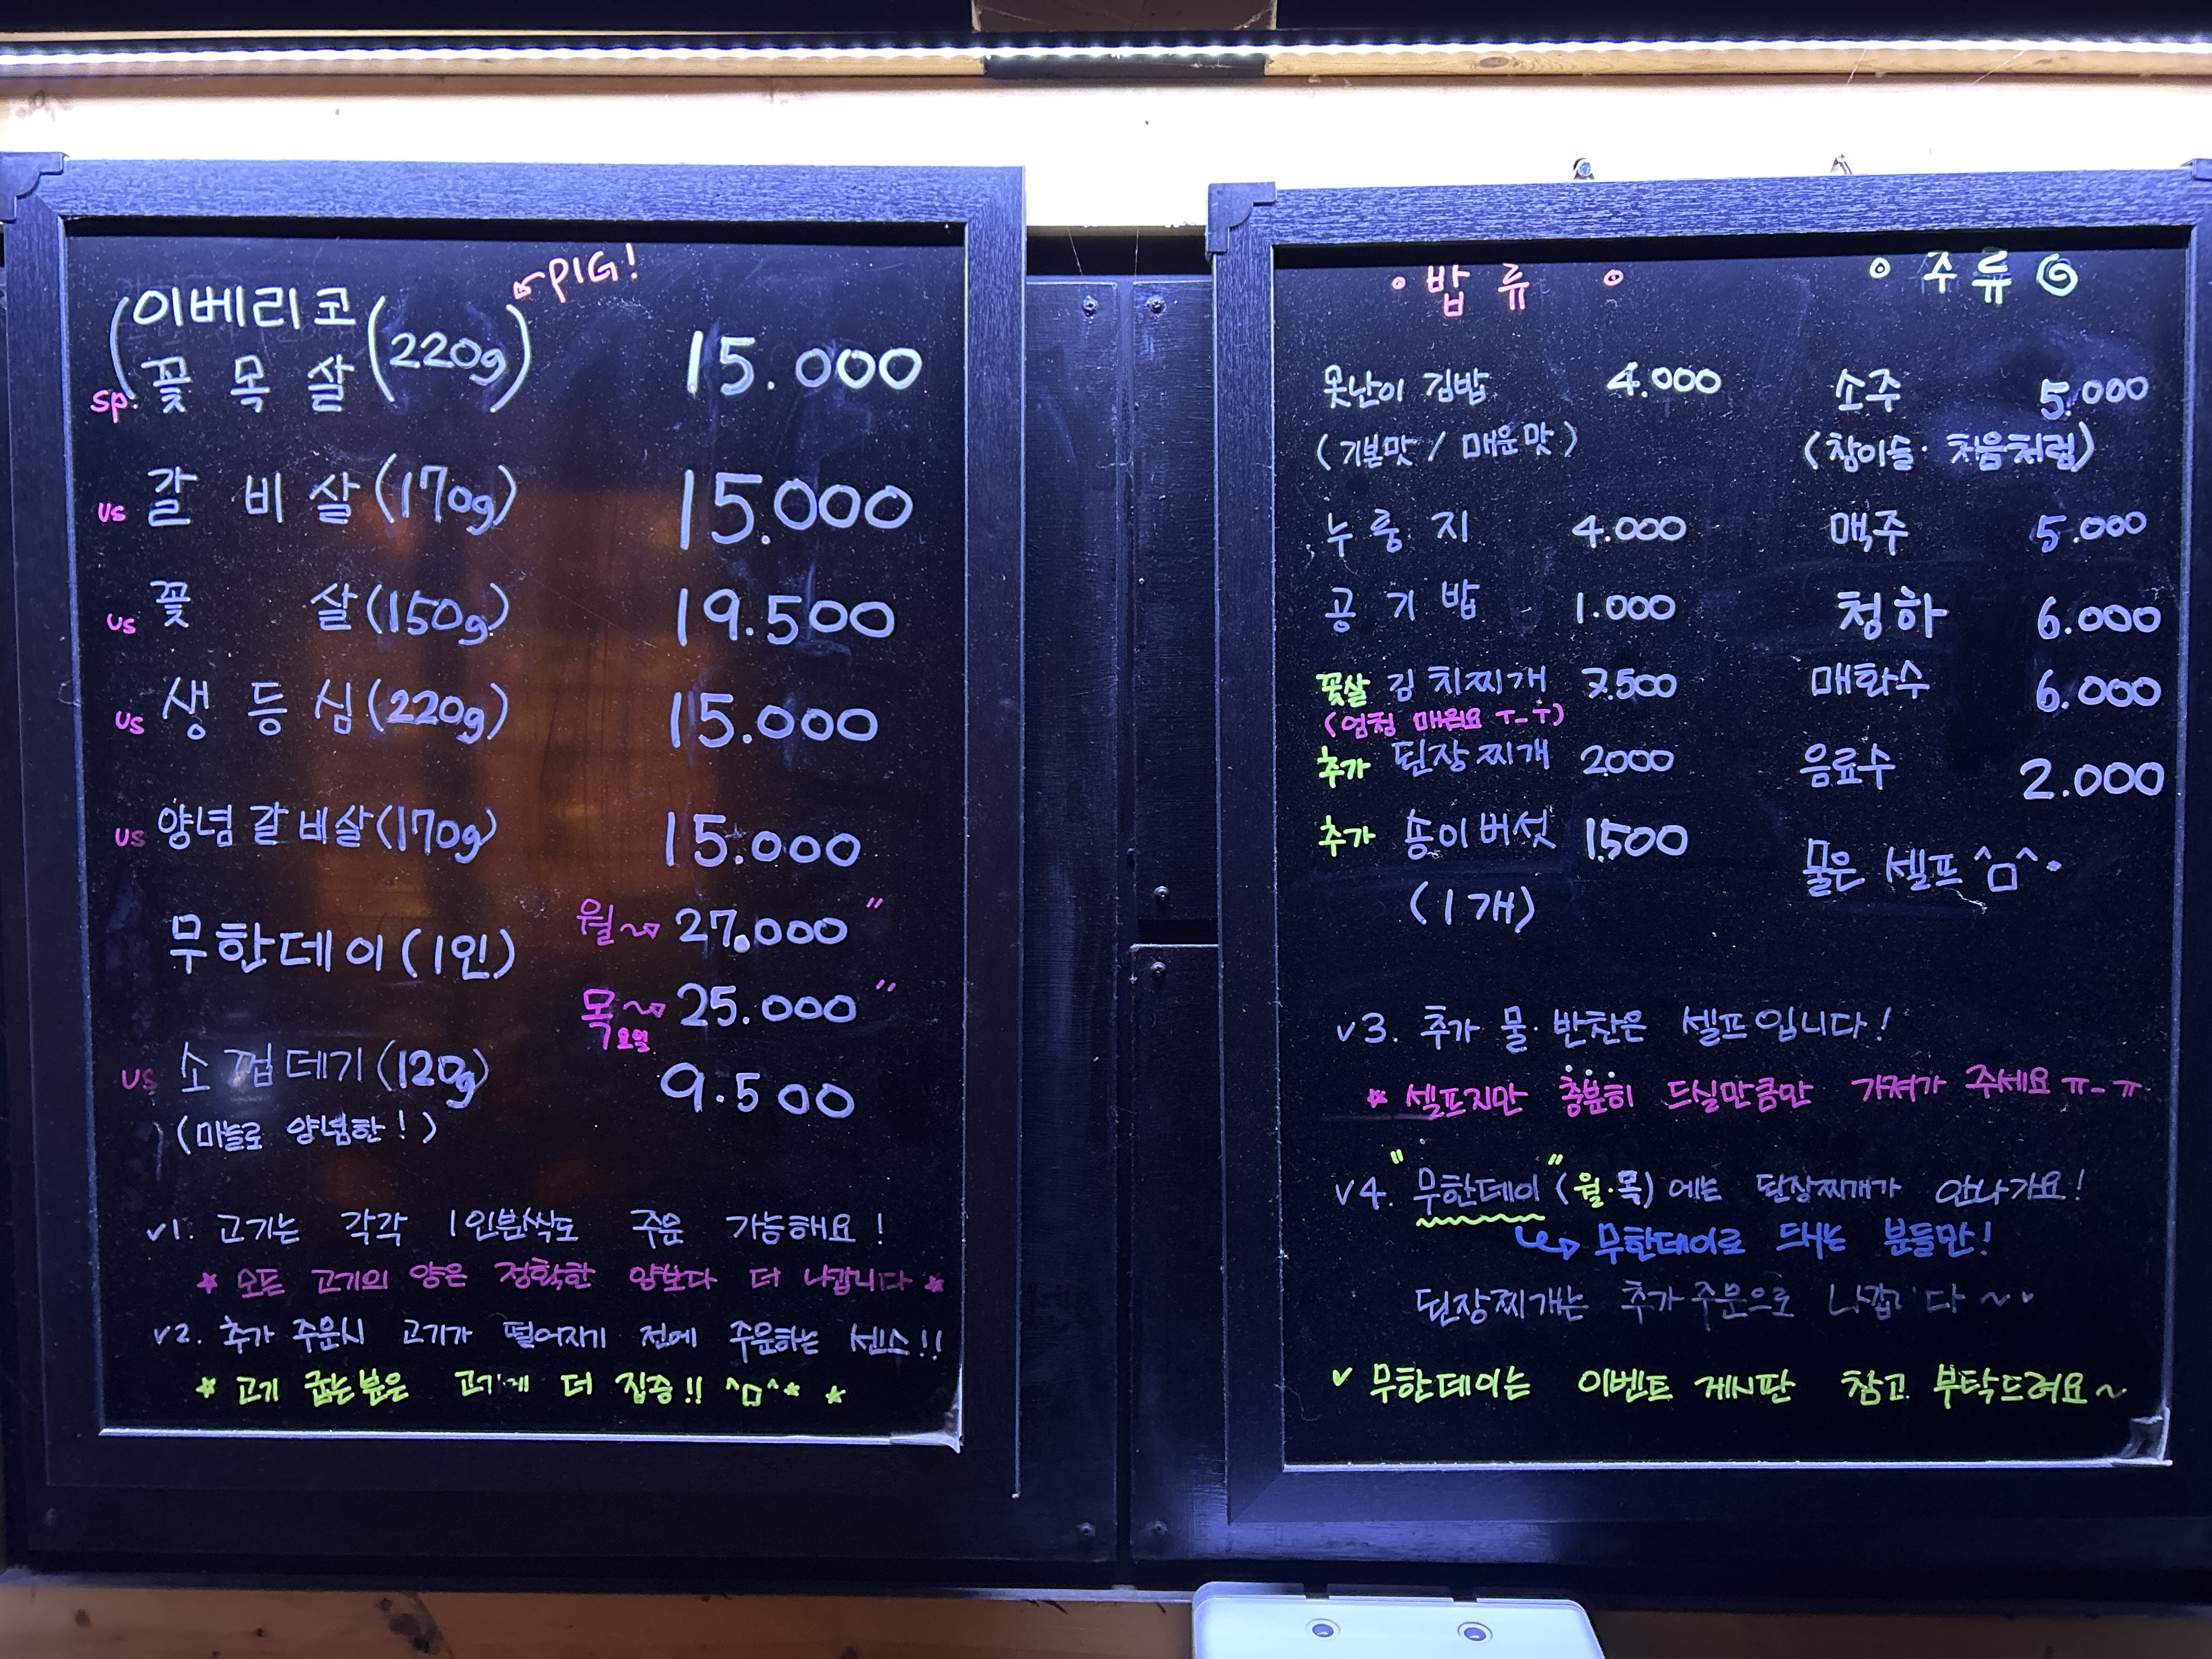 이베리코 ↜PIG!
sp. 꽃목살 (220g) 15.000
us 갈비살(170g) 15.000
us 꽃살(150g) 19.500
us 생등심(220g) 15.000
us 양념갈비살(170g) 15.000
무한데이(1인) 월~→ 27.000〃
목요일~→ 25.000〃
us 소껍데기(120g) 9.500
(마늘로 양념한!)
v1. 고기는 각각 1인분씩도 주문 가능해요!
* 모든 고기의 양은 정확한 양보다 더 나갑니다 *
v2. 추가 주문시 고기가 떨어지기 전에 주문하는 센스!!
* 고기 굽는분은 고기에 더 집중!! ^ㅁ^* *
∘밥류∘
못난이 김밥 4.000
(기본맛 / 매운맛)
누룽지 4.000
공기밥 1.000
꽃살 김치찌개 7.500
(엄청 매워요 ㅜ_ㅜ)
추가 된장찌개 2000
추가 송이버섯 1.500
(1개)
∘주류
소주 5.000
(참이슬· 처음처럼)
맥주 5.000
청하 6.000
매화수 6.000
음료수 2.000
물은 셀프^ㅁ^·
v3. 추가 물·반찬은 셀프입니다!
* 셀프지만 충분히 드실만큼만 가져가 주세요 ㅠ_ㅠ
v4. "무한데이"(월·목)에는 된장찌개가 안나가요!
↪ 무한데이로 드시는 분들만!
된장찌개는 추가주문으로 나갑니다~
v 무한데이는 이벤트 게시판 참고 부탁드려요~